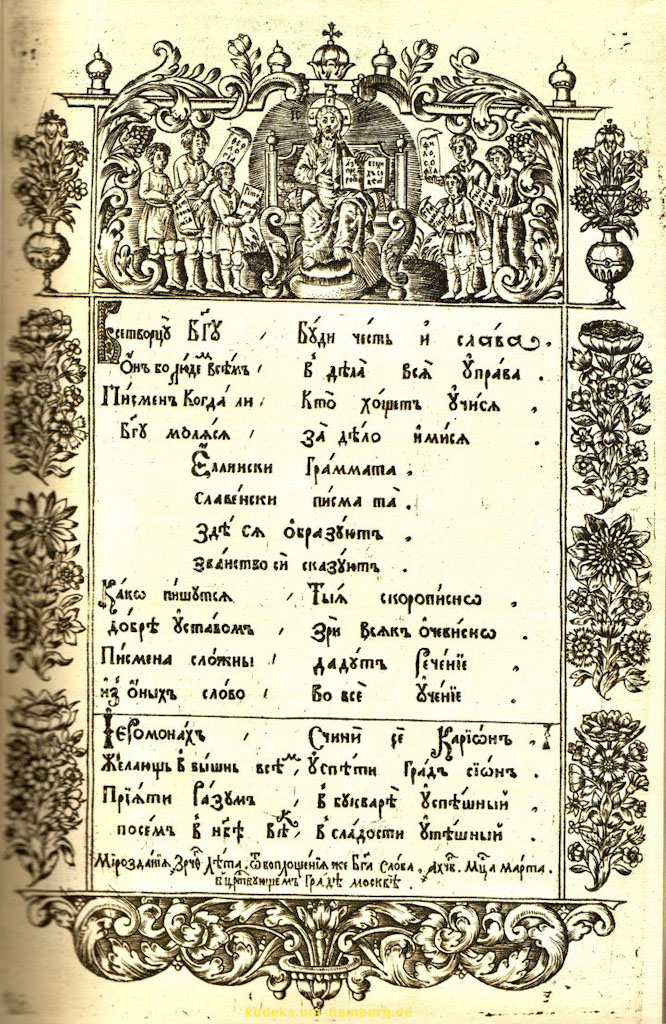 Всетворцꙋ Бг҃ꙋ , Бꙋ́ди че́сть и҆ сла́ва .
Ѻ҆́нъ бо люде́м всѣ́мъ , в дѣла̀ всѧ̑ ᲂу҆пра́ва .
Пи́сменъ когда̀ ли , Кто̀ хо́щетъ ᲂу҆чи́сѧ ,
Бг҃ꙋ молѧ́сѧ , за̀ дѣ́ло и҆ми́сѧ .
Є҆́ллински Гра́ммата ,
славе́нски писмата̀ .
Здѣ̀ сѧ ѡ҆бразꙋ́ютъ ,
зва́нство сѝ сказꙋ́ютъ .
Ка́кѡ пи́шꙋтсѧ , Ты́ѧ скоропи́снѡ ,
до́брѣ ᲂу҆ста́вомъ , зрѝ всѧ́къ ѻ҆чеви́снѡ .
Пи́смена сло́жны , даду́тъ рече́нїе ,
и҆з̾ ѻ҆́ныхъ сло́во , Во всѐ ᲂу҆че́нїе .
І҆еромона́хъ , Счинѝ сѐ Карїѡ́нъ ,
Жела́ющь в вы́шнь всѣ́м , ᲂу҆спѣ́ти гра́дъ сїѡ́нъ .
Прїѧ́ти ра́зꙋм , в бꙋкварѣ̀ ᲂу҆спѣ́шный ,
посе́мъ в нб҃ѣ вѣ́к , в сла́дости ᲂу҆тѣ́шный .
Мірозда́нїѧ ҂зрч҃в лѣ́та . ѿ воплоще́нїѧ же Бг҃а Сло́ва , ҂ахч҃д . мц҃а ма́рта .
В ца́рствꙋющемъ гра́дѣ москвѣ̀ .
kodeks.uni-bamberg.de